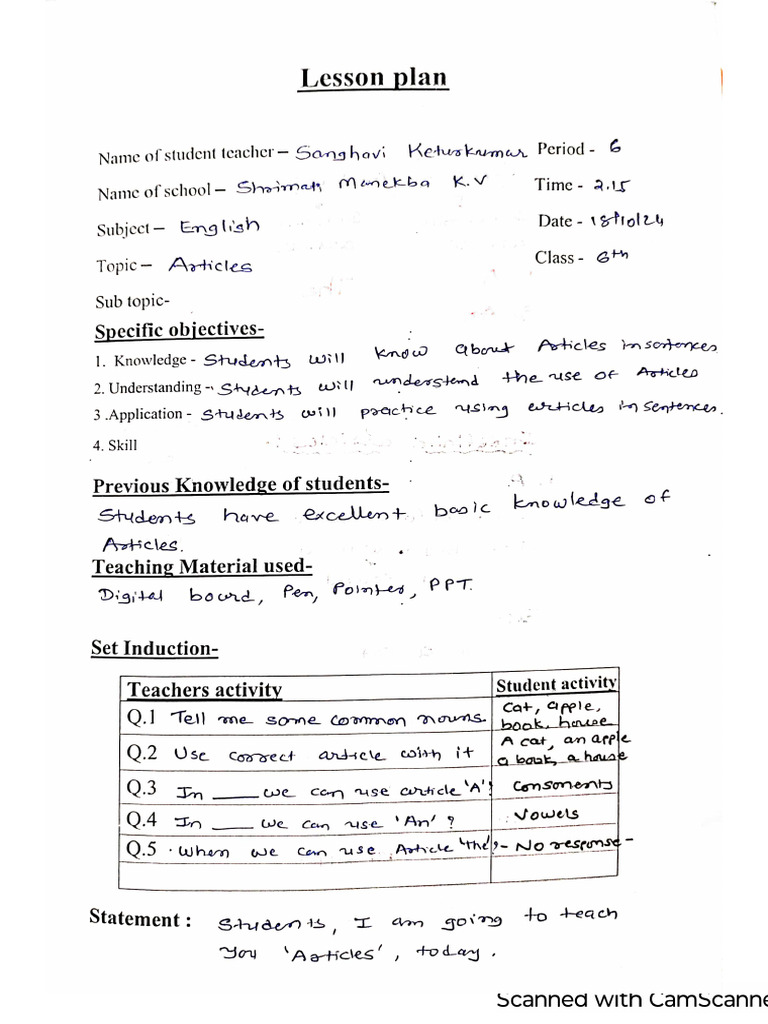 Lesson plan
Name of student teacher – Sanghavi Keturkumar Period - 6
Name of school – Shrimati Manekba K.V Time - 2.15
Subject – English Date - 18/10/24
Topic – Articles Class - 6th
Sub topic-
Specific objectives-
1. Knowledge - Students will know about Articles in sentences
2. Understanding - Students will understand the use of Articles
3 .Application - Students will practice using articles in sentences.
4. Skill
Previous Knowledge of students-
Students have excellent basic knowledge of
Articles.
Teaching Material used-
Digital board, Pen, Pointer, PPT.
Set Induction-
Teachers activity Student activity
Q.1 Tell me some common nouns. Cat, apple,
book, house
Q.2 Use correct article with it A cat, an apple
a book, a house
Q.3 In ___ we can use article 'A'? Consonents
Q.4 In ___ we can use 'An' ? Vowels
Q.5 When we can use Article 'the'? - No response -
Statement : Students, I am going to teach
You 'Articles', today.
Scanned with CamScanne